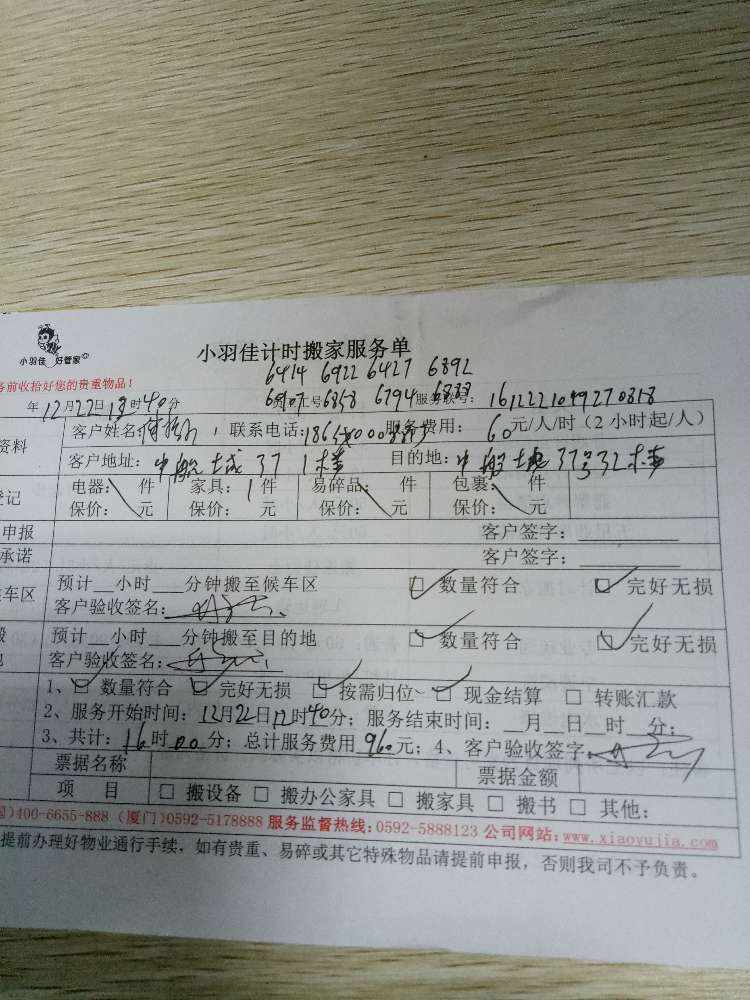 小羽佳 好管家
小羽佳计时搬家服务单
务前收拾好您的贵重物品!
6414 6922 6427 6892
年12月22日 时40分 工号: 6858 6794 6888 服务联号: 1612221049270818
资料 客户姓名: 联系电话: 服务费用: 60元/人/时(2小时起/人)
客户地址: 中航城37 1楼 目的地: 中航城37号32楼
登记 电器: 件 家具: 1件 易碎品: 件 包裹: 件
保价: 元 保价: 元 保价: 元 保价: 元
申报 客户签字:
承诺 客户签字:
候车区 预计__小时___分钟搬至候车区 ☑ 数量符合 ☑ 完好无损
客户验收签名:
预计__小时___分钟搬至目的地 ☑ 数量符合 ☑ 完好无损
客户验收签名:
1、☑ 数量符合 ☑ 完好无损 ☑ 按需归位 ☑ 现金结算 □ 转账汇款
2、服务开始时间: 12月22日 时40分; 服务结束时间: __月__日__时__分;
3、共计: 16时00分; 总计服务费用960元; 4、客户验收签字
票据名称 票据金额
项 目 □ 搬设备 □ 搬办公家具 □ 搬家具 □ 搬书 □ 其他:
国)400-6655-888 (厦门)0592-5178888 服务监督热线:0592-5888123 公司网站:www.xiaoyujia.com
提前办理好物业通行手续, 如有贵重、易碎或其它特殊物品请提前申报, 否则我司不予负责。